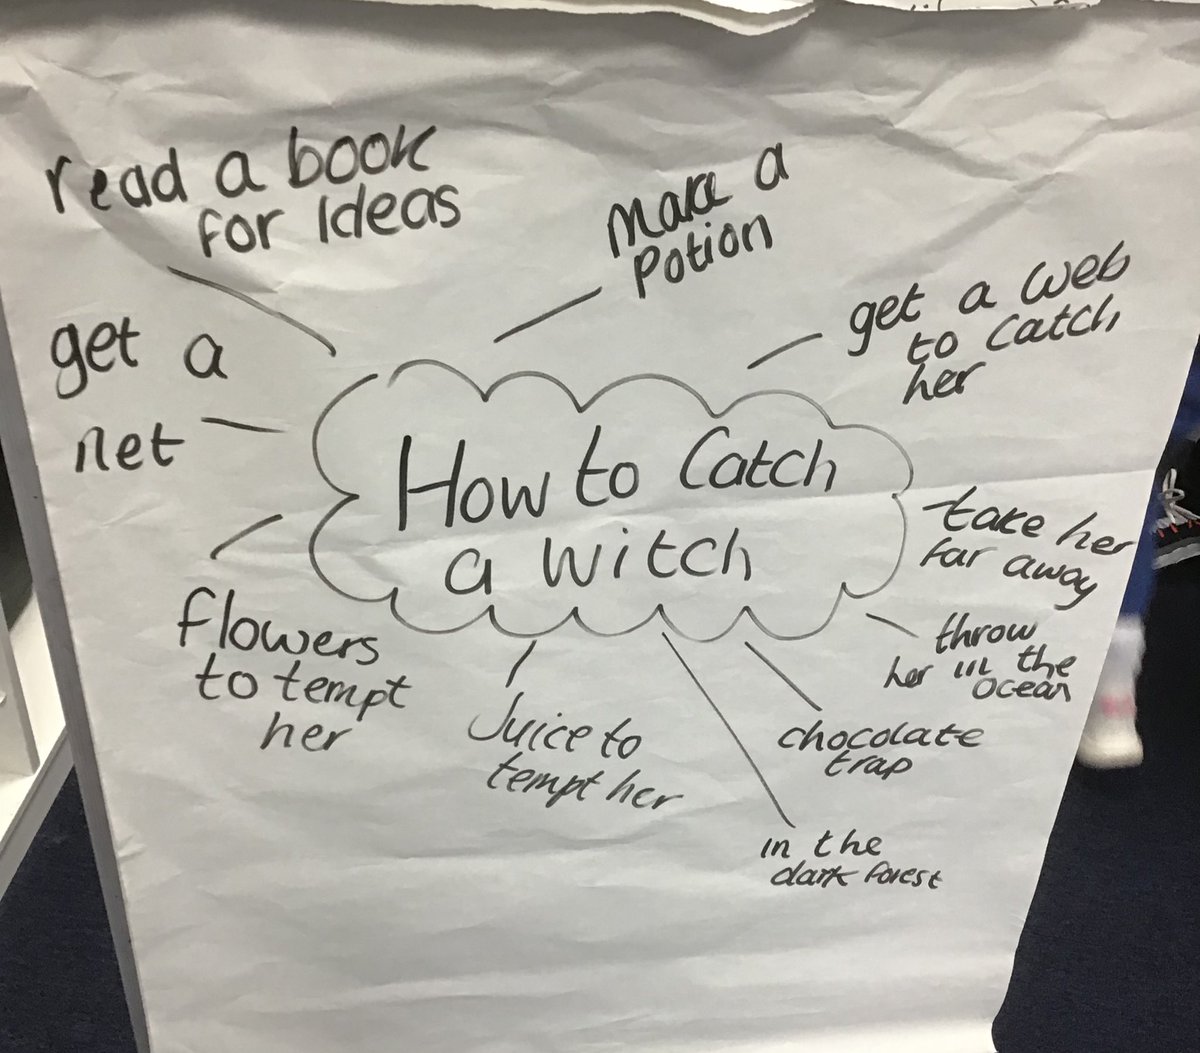 read a book
for Ideas
Make a
potion
get a web
to catch
her
get a
net
How to Catch
a witch
take her
far away
throw
her in the
ocean
flowers
to tempt
her
Juice to
tempt her
chocolate
trap
in the
dark forest